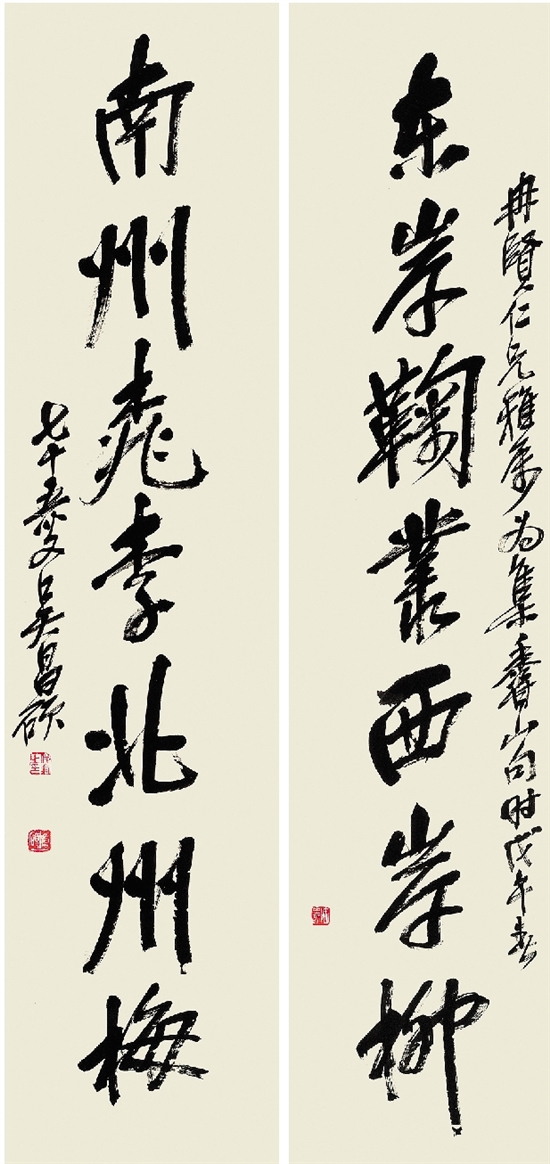 冉賢仁兄雅属为集香山句时戊午春
东岸鞠叢西岸柳
南州桃李北州梅
七十五叟吴昌硕